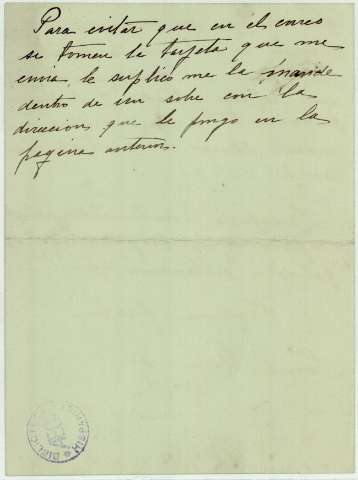 Para evitar que en el correo
se tomen la tarjeta que me
envia le suplico me la mande
dentro de un sobre con la
direccion que le pongo en la
pagina anterior.